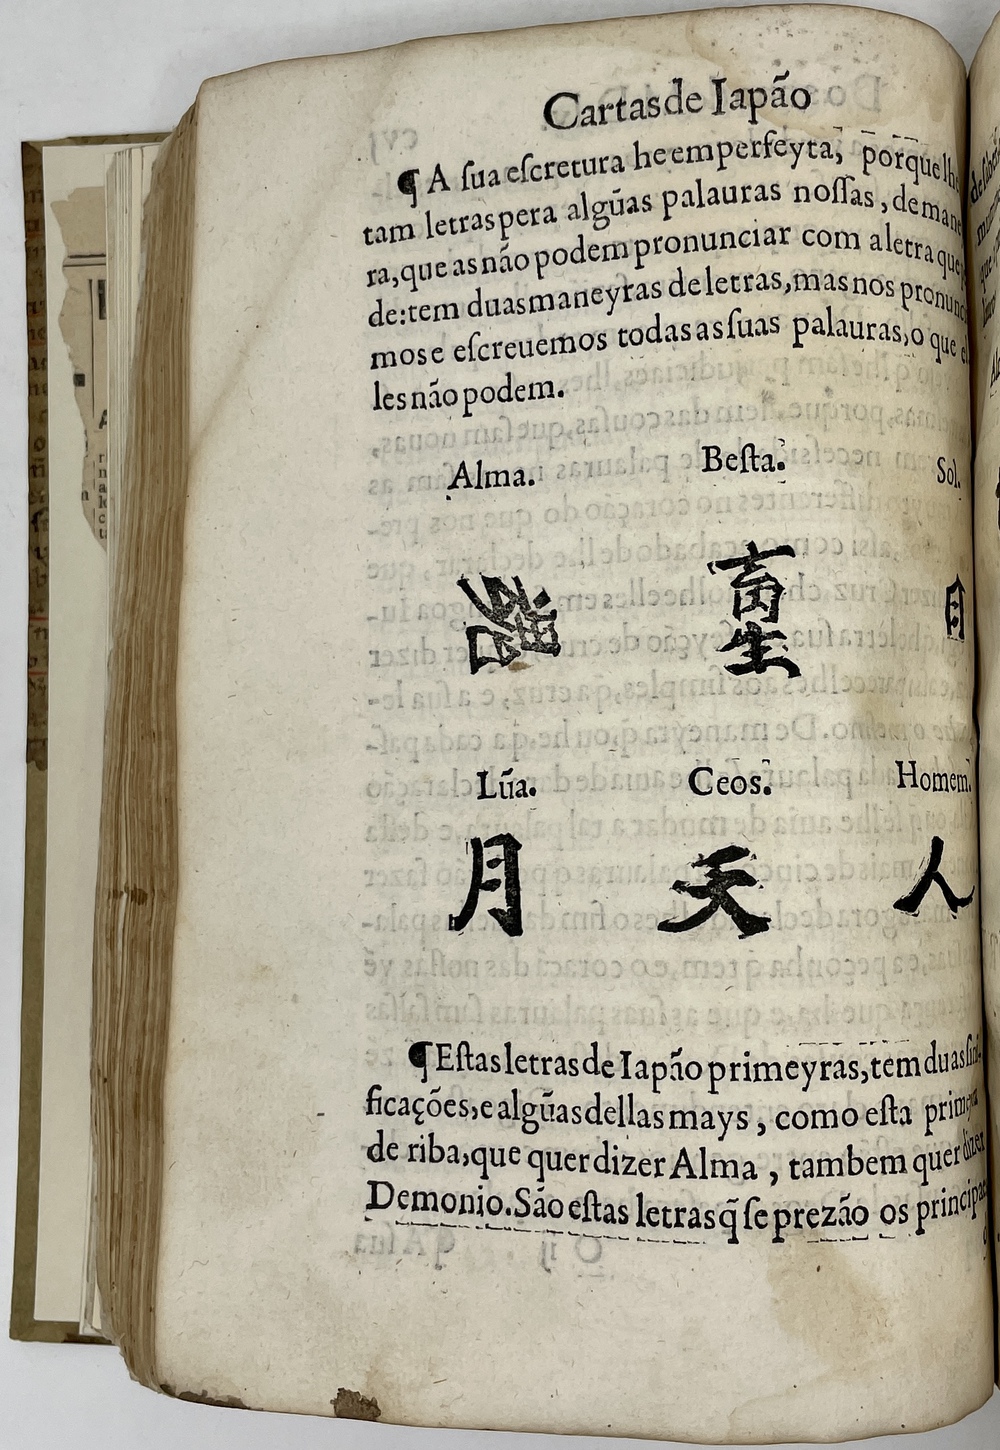 Cartas de Iapão
¶ A ſua eſcretura he emperfeyta, porque lhe
tam letras pera algũas palauras noſſas, de mane
ra, que as não podem pronunciar com a letra que
de: tem duas maneyras de letras, mas nos pronunc
mos e eſcreuemos todas as ſuas palauras, o que e
les não podem.
Alma. Beſta. Sol.
畜生 日
Lũa. Ceos. Homem.
月 天 人
¶ Eſtas letras de Iapão primeyras, tem duas ſini-
ficações, e algũas dellas mays, como eſta primeyra
de riba, que quer dizer Alma, tambem quer dizer
Demonio. São eſtas letras q̃ ſe prezão os principa